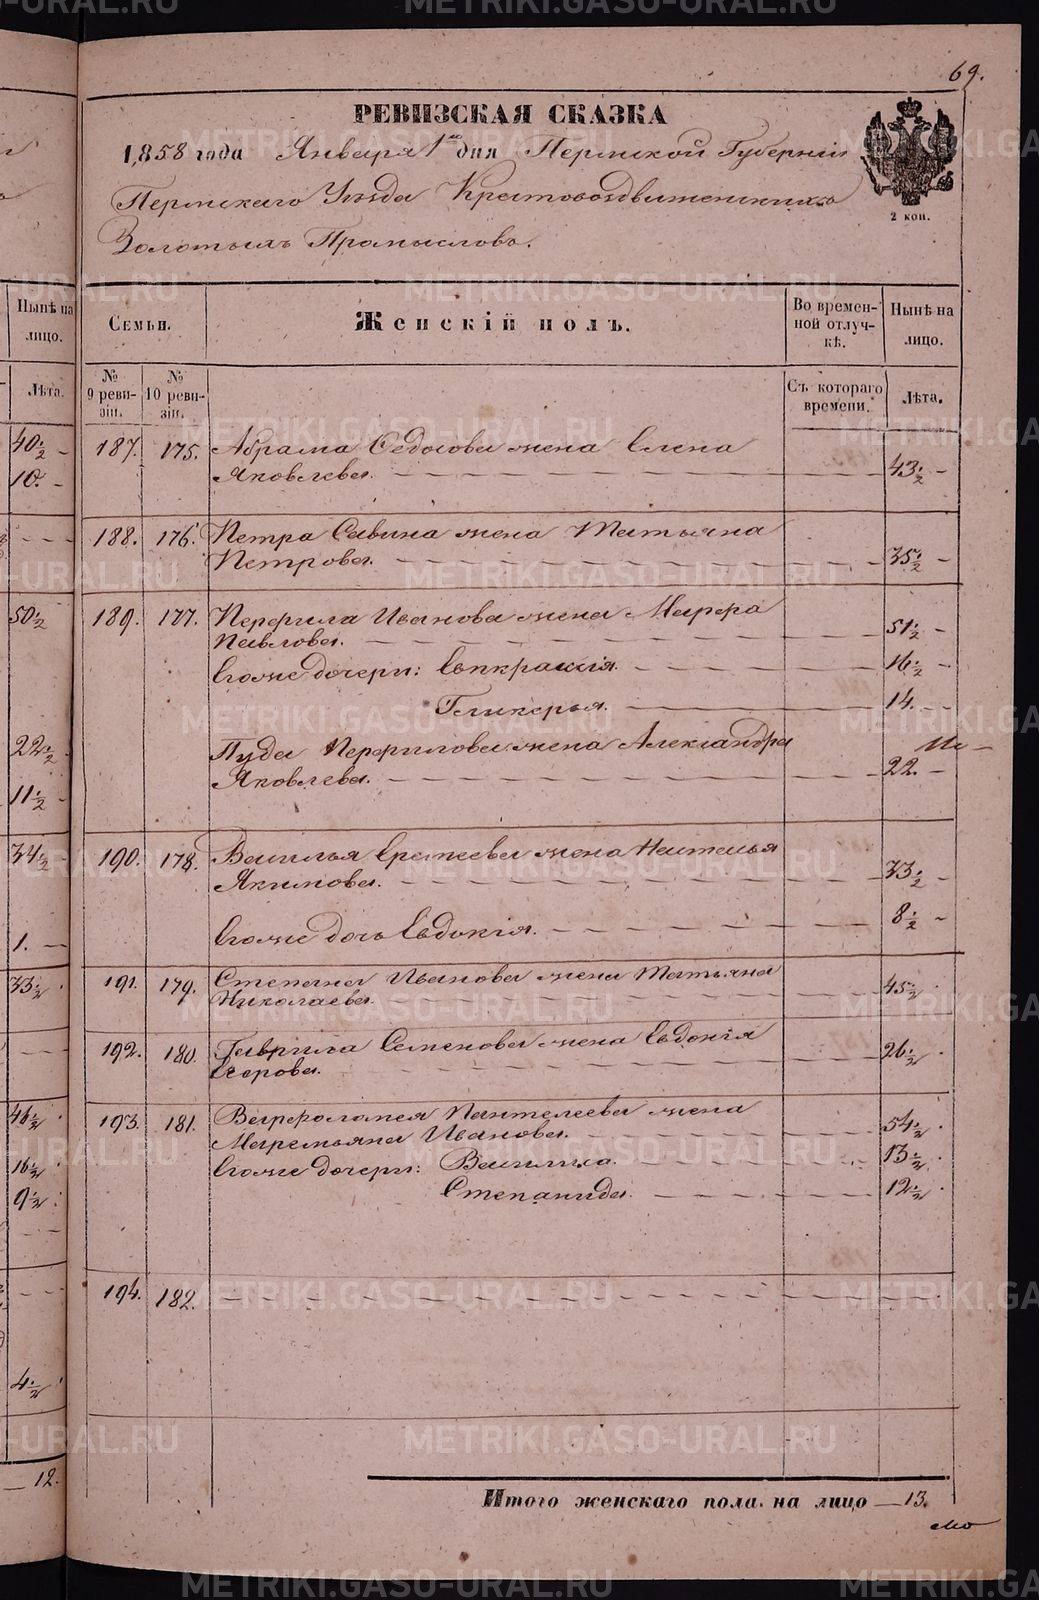 METRIKI.GASO-URAL.RU
69.
РЕВИЗСКАЯ СКАЗКА
1858 года Января 1го дня Пермской Губерніи
Пермскаго Уѣзда Крестовоздвиженскихъ
Золотыхъ Промысловъ.
2 коп.
Нынѣ на лицо.
Семьи.
Женскій полъ.
Во времен-
ной отлуч-
кѣ.
Нынѣ на
лицо.
Лѣта.
№ 9 реви-
зіи.
№ 10 реви-
зіи.
Съ котораго
времени.
Лѣта.
40 1/2
10.
187. 175. Абрама Федосова жена Елена
Яковлева. 43 1/2
188. 176. Петра Савина жена Татьяна
Петрова. 35 1/2
50 1/2
189. 177. Перфила Иванова жена Марфа
Павлова. 51 1/2
Егоже дочери: Евпраксія. 16 1/2
Гликерья. 14.
22 1/2
Пуда Перфилова жена Александра
Яковлева. 22.
11 1/2
34 1/2
190. 178. Василья Еремеева жена Наталья
Якимова. 33 1/2
1.
Егоже дочь Евдокія. 8 1/2
33 1/2
191. 179. Степана Иванова жена Татьяна
Николаева. 45 1/2
192. 180. Гаврила Семенова жена Евдокія
Егорова. 26 1/2
46 1/2
193. 181. Варфоломея Пантелеева жена
Маремьяна Иванова. 54 1/2
16 1/2
Егоже дочери: Василиса. 13 1/2
9 1/2
Степанида. 12 1/2
194. 182.
4 1/2
12.
Итого женскаго пола на лицо 13.